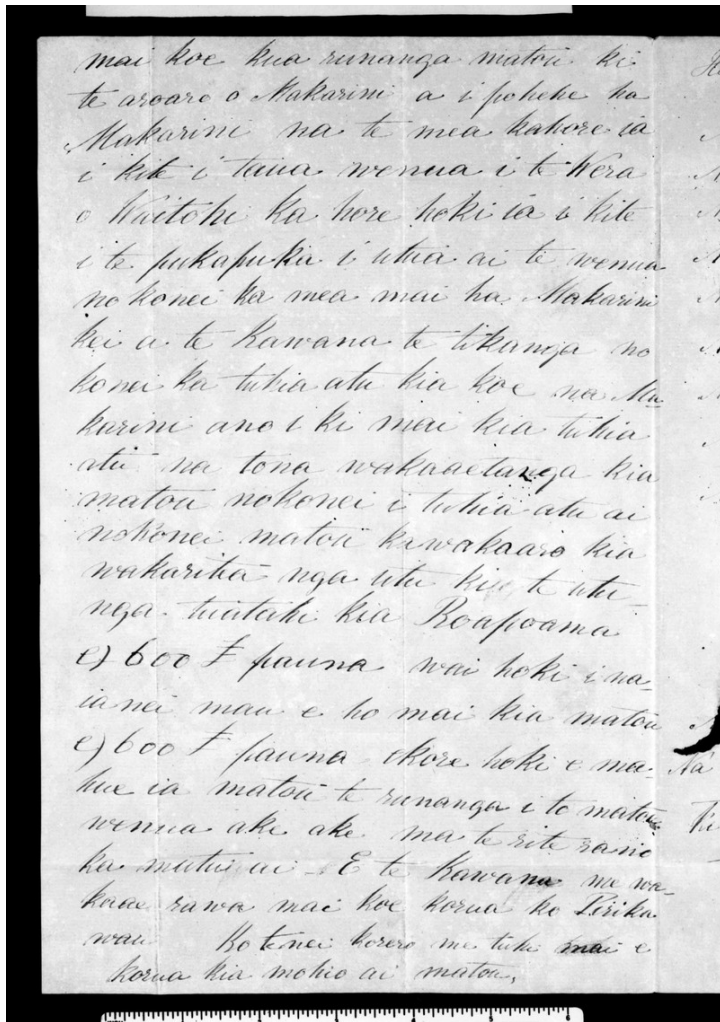 mai koe kua runanga matou ki
te aroaro o Makarini a i pohehe ha
Makarini na te mea kahore ia
i kite i taua wenua i te Wera
o Waitohi ka hore hoki ia i kite
i te pukapuka i utua ai te wenua
no konei ka mea mai ha Makarini
kei a te Kawana te tikanga no
konei ka tuhia atu kia koe na Ma-
karini ano i ki mai kia tuhia
atu na tona wakaaetanga kia
matou nokonei i tuhia atu ai
nokonei matou ka wakaaro kia
wakaritea nga utu ki te utu-
nga tuatahi kia Roapoama
e) 600 £ pauna wai hoki i na-
ia nei mau e ho mai kia matou
e) 600 £ pauna ekore hoki e ma-
hue ia matou te runanga i to matou
wenua ake ake ma te rite rano
ka mutu ai - E te Kawana me wa-
kaae rawa mai koe korua ko Ririka
wau Ko tenei korero me tuhi mai e
korua kia mohio ai matou,
Na